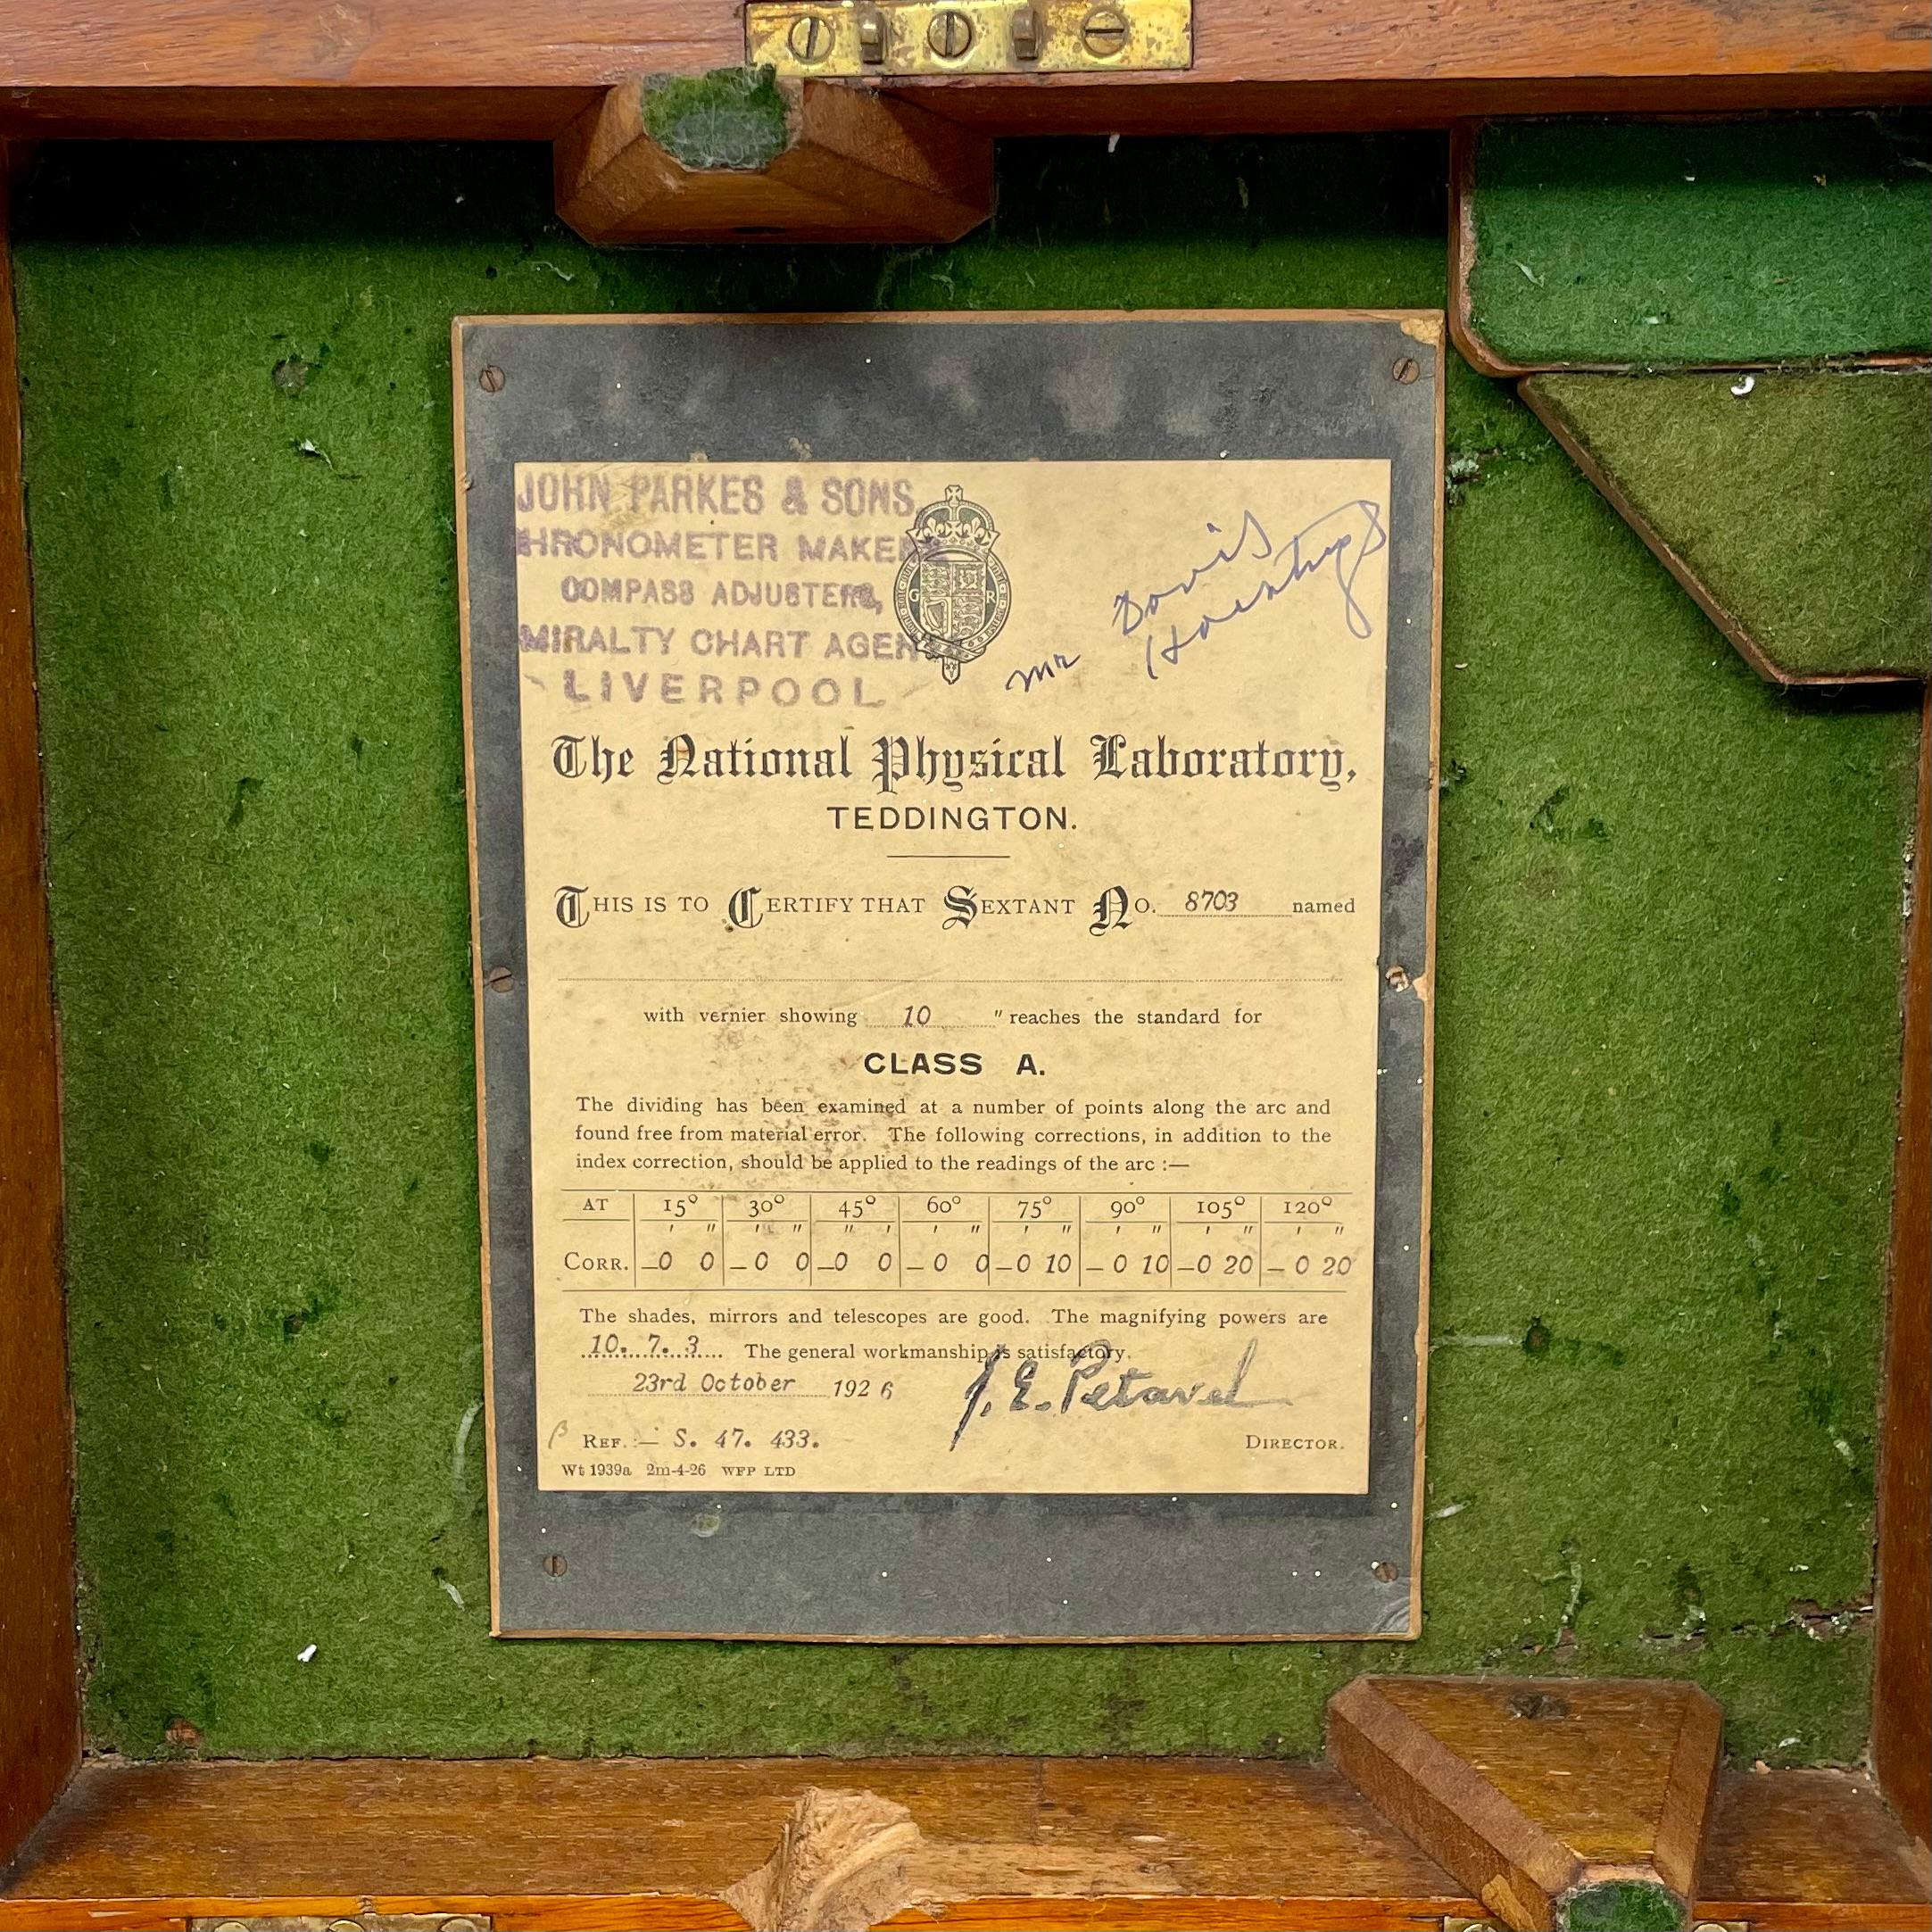 JOHN PARKES & SONS
HRONOMETER MAKE
COMPASS ADJUSTERS,
MIRALTY CHART AGEN
LIVERPOOL
G R
Mr Davis
The National Physical Laboratory,
TEDDINGTON.
THIS IS TO CERTIFY THAT SEXTANT NO. 8703 named
with vernier showing 10 " reaches the standard for
CLASS A.
The dividing has been examined at a number of points along the arc and
found free from material error. The following corrections, in addition to the
index correction, should be applied to the readings of the arc :—
AT 15° 30° 45° 60° 75° 90° 105° 120°
' " ' " " ' ' " ' " ' " ' " ' "
CORR. –0 0 –0 0 –0 0 –0 0 –0 10 –0 10 –0 20 –0 20
The shades, mirrors and telescopes are good. The magnifying powers are
10. 7. 3 The general workmanship is satisfactory.
23rd October 1926 J. E. Petavel
β REF. :— S. 47. 433. DIRECTOR.
Wt 1939a 2m-4-26 WFP LTD